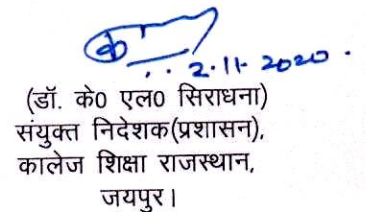 2.11.2020.
(डॉ. के० एल० सिराधना)
संयुक्त निदेशक(प्रशासन),
कालेज शिक्षा राजस्थान,
जयपुर।